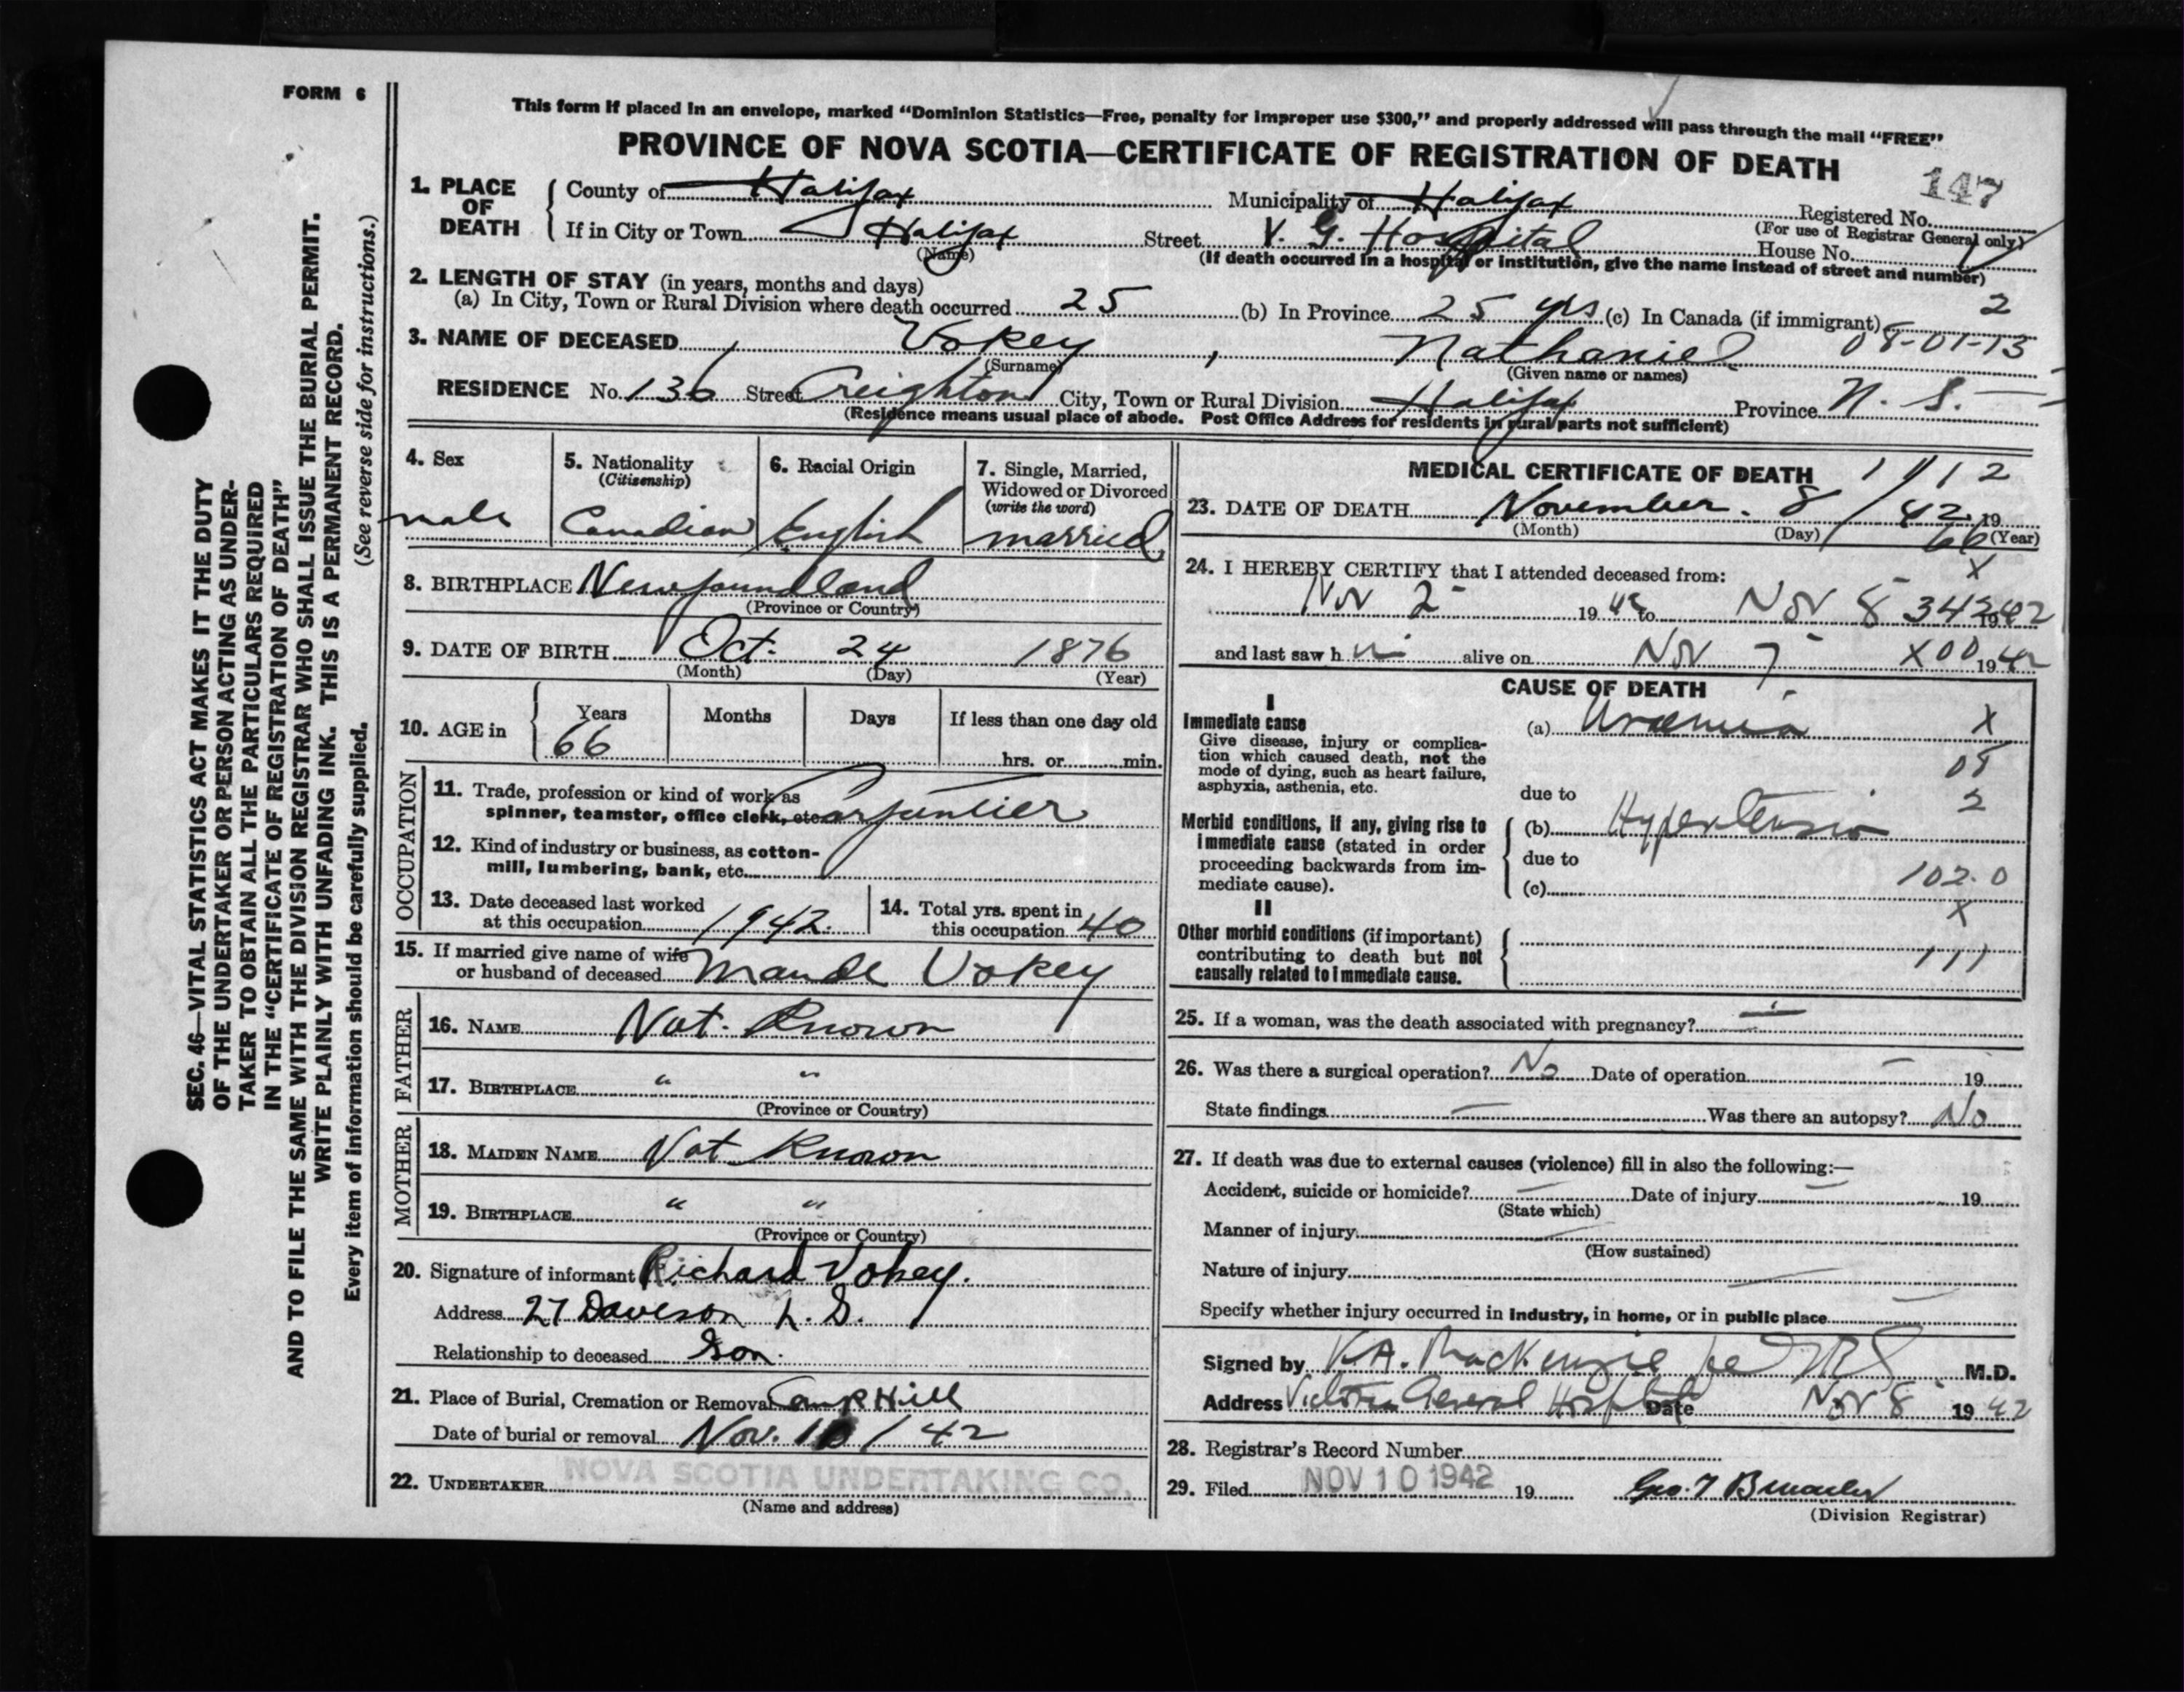 FORM 6
This form if placed in an envelope, marked “Dominion Statistics—Free, penalty for improper use $300,” and properly addressed will pass through the mail “FREE”
PROVINCE OF NOVA SCOTIA—CERTIFICATE OF REGISTRATION OF DEATH
147
1. PLACE OF DEATH
County of Halifax Municipality of Halifax Registered No.
(For use of Registrar General only)
If in City or Town Halifax Street V. G. Hospital House No.
(Name) (If death occurred in a hospital or institution, give the name instead of street and number)
2. LENGTH OF STAY (in years, months and days)
(a) In City, Town or Rural Division where death occurred 25 (b) In Province 25 yrs (c) In Canada (if immigrant) 2
08-01-13
3. NAME OF DECEASED Vokey, Nathaniel
(Surname) (Given name or names)
RESIDENCE No. 136 Street Creighton City, Town or Rural Division Halifax Province N. S.
(Residence means usual place of abode. Post Office Address for residents in rural parts not sufficient)
4. Sex
male
5. Nationality
(Citizenship)
Canadian
6. Racial Origin
English
7. Single, Married,
Widowed or Divorced
(write the word)
married
8. BIRTHPLACE Newfoundland
(Province or Country)
9. DATE OF BIRTH Oct. 24 1876
(Month) (Day) (Year)
10. AGE in
Years Months Days If less than one day old
66 hrs. or min.
OCCUPATION
11. Trade, profession or kind of work as
spinner, teamster, office clerk, etc. Carpuntier
12. Kind of industry or business, as cotton-
mill, lumbering, bank, etc.
13. Date deceased last worked
at this occupation 1942.
14. Total yrs. spent in
this occupation 40
15. If married give name of wife
or husband of deceased Maude Vokey
FATHER
16. NAME Not. Known
17. BIRTHPLACE " "
(Province or Country)
MOTHER
18. MAIDEN NAME Not Known
19. BIRTHPLACE " "
(Province or Country)
20. Signature of informant Richard Vokey.
Address 27 Dawson
Relationship to deceased Son.
21. Place of Burial, Cremation or Removal Camp Hill
Date of burial or removal Nov. 10/42
22. UNDERTAKER NOVA SCOTIA UNDERTAKING CO.
(Name and address)
MEDICAL CERTIFICATE OF DEATH
1112
23. DATE OF DEATH November. 8 / 42 19
(Month) (Day) (Year)
66
24. I HEREBY CERTIFY that I attended deceased from:
X
Nov 2 1942 to Nov 8 342 1942
and last saw h im alive on Nov 7 X00 1942
CAUSE OF DEATH
I
Immediate cause
Give disease, injury or complica-
tion which caused death, not the
mode of dying, such as heart failure,
asphyxia, asthenia, etc.
(a) Uraemia X
08
due to 2
Morbid conditions, if any, giving rise to
immediate cause (stated in order
proceeding backwards from im-
mediate cause).
(b) Hypertension
due to
(c) 102.0
X
II
Other morbid conditions (if important)
contributing to death but not
causally related to immediate cause.
111
25. If a woman, was the death associated with pregnancy? —
26. Was there a surgical operation? No Date of operation — 19
State findings — Was there an autopsy? No
27. If death was due to external causes (violence) fill in also the following:—
Accident, suicide or homicide? — Date of injury — 19
(State which)
Manner of injury —
(How sustained)
Nature of injury —
Specify whether injury occurred in industry, in home, or in public place —
Signed by K.A. MacKenzie M.D.
Address Victoria General Hospital Date Nov 8 1942
28. Registrar's Record Number
29. Filed NOV 10 1942 19 Geo. T
(Division Registrar)
SEC. 46—VITAL STATISTICS ACT MAKES IT THE DUTY
OF THE UNDERTAKER OR PERSON ACTING AS UNDER-
TAKER TO OBTAIN ALL THE PARTICULARS REQUIRED
IN THE “CERTIFICATE OF REGISTRATION OF DEATH”
AND TO FILE THE SAME WITH THE DIVISION REGISTRAR WHO SHALL ISSUE THE BURIAL PERMIT.
WRITE PLAINLY WITH UNFADING INK. THIS IS A PERMANENT RECORD.
Every item of information should be carefully supplied. (See reverse side for instructions.)